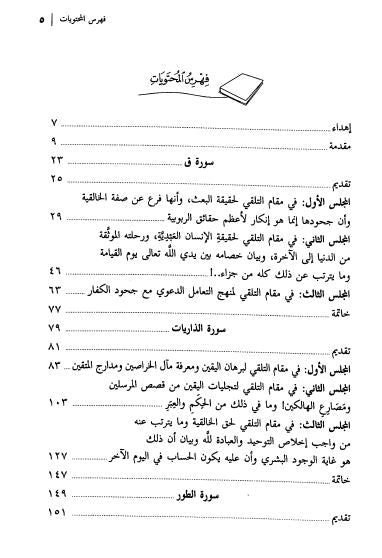 فهرس المحتويات | ٥
فِهْرِسُ المُحْتَوَيَاتِ
إهداء ٧
مقدمة ٩
سورة ق ٢٣
تقديم ٢٥
المجلس الأول: في مقام التلقي لحقيقة البعث، وأنها فرع عن صفة الخالقية
وأن جحودها إنما هو إنكار لأعظم حقائق الربوبية ٢٩
المجلس الثاني: في مقام التلقي لحقيقةِ الإنسان العَيْنِيَّةِ، ورحلته الموثَّقة
من الدنيا إلى الآخرة، وبيان خصامه بين يدي اللَّه تعالى يوم القيامة
وما يترتب عن ذلك كله من جزاء..! ٤٦
المجلس الثالث: في مقام التلقي لمنهج التعامل الدعوي مع جحود الكفار ٦٣
خاتمة ٧٧
سورة الذاريات ٧٩
تقديم ٨١
المجلس الأول: في مقام التلقي لبرهان اليقين ومعرفة مآل الخراصين ومدارج المتقين ٨٣
المجلس الثاني: في مقام التلقي لتجليات اليقين من قصص المرسلين
ومَصَارعِ الهالكين! وما في ذلك من الحِكَمِ والعِبَرِ ١٠٣
المجلس الثالث: في مقام التلقي لحق الخالقية وما يترتب عنه
من واجب إخلاص التوحيد والعبادة للَّه وبيان أن ذلك
هو غاية الوجود البشري وأن عليه يكون الحساب في اليوم الآخر ١٢٧
خاتمة ١٤٧
سورة الطور ١٤٩
تقديم ١٥١